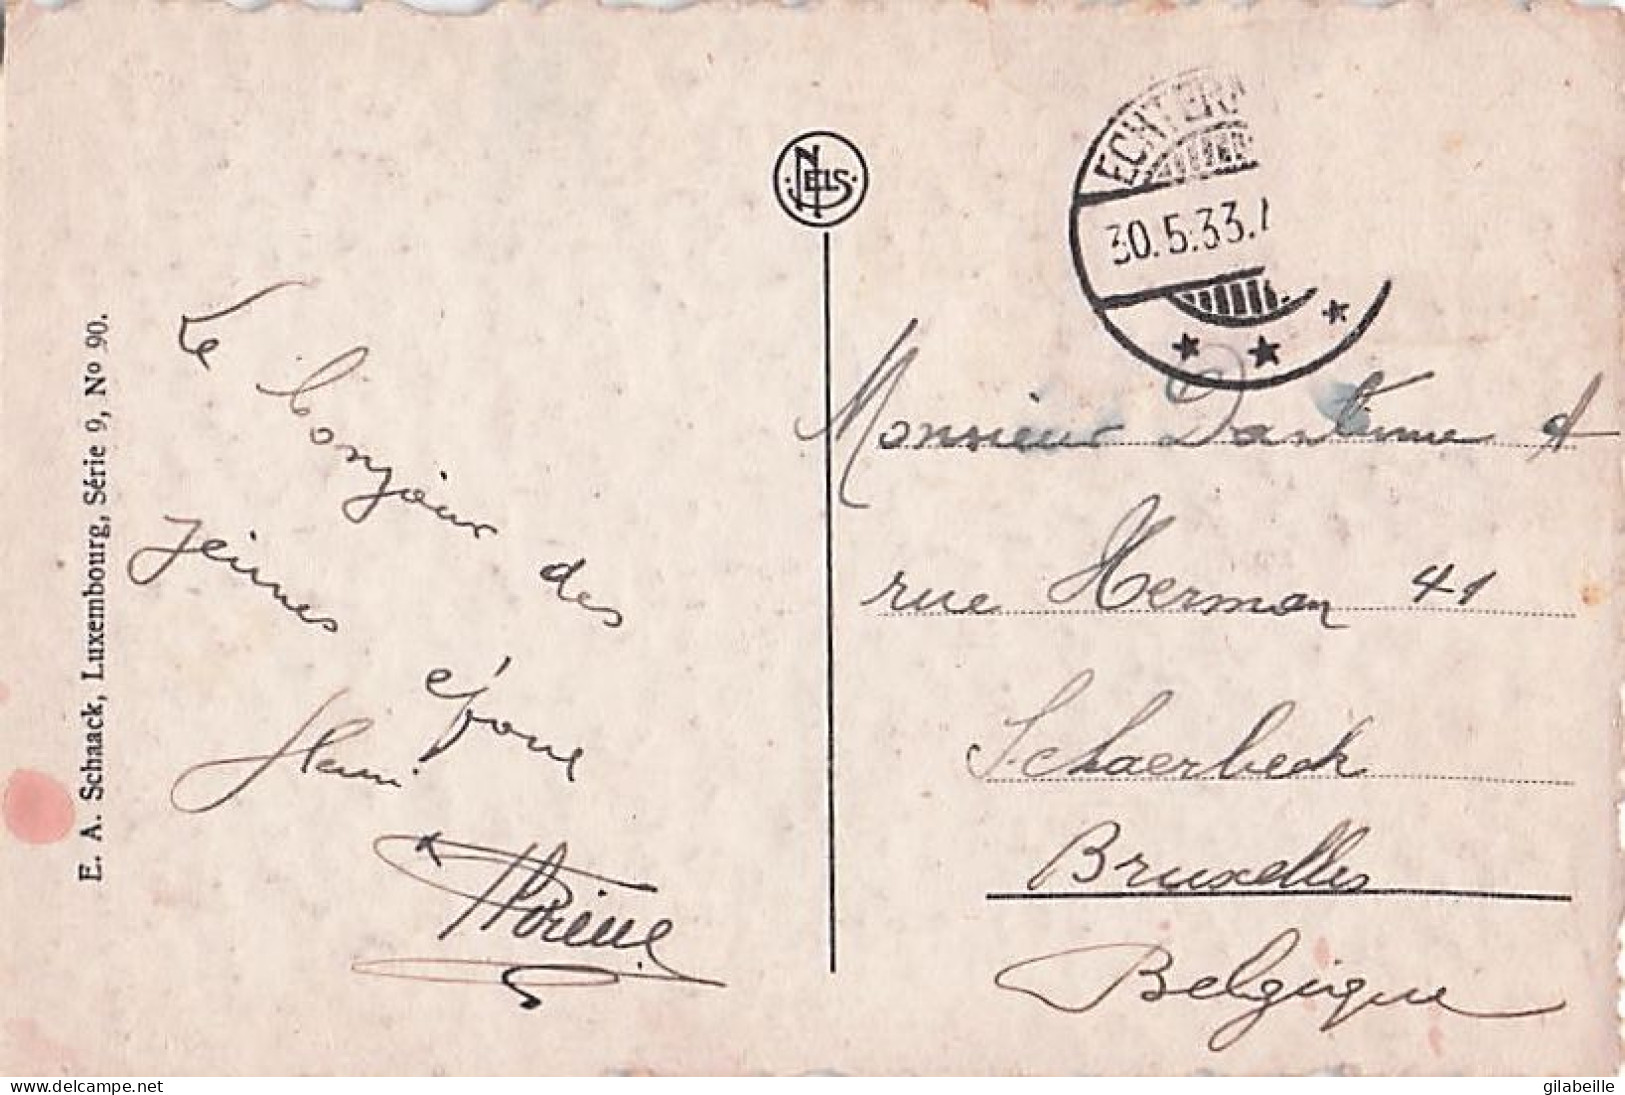 E. A. Schaack, Luxembourg, Série 9, Nº 90.
NELS
ECHTERN
30.5.33.
Le bonjour des
jeunes époux
Henri
Monsieur
rue Herman 41
Schaerbeck
Bruxelles
Belgique
www.delcampe.net
gilabeille